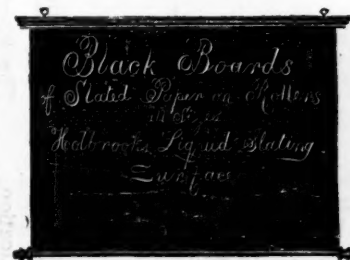 Black Boards
of Slated Paper on Rollers
Holbrook's Liquid Slating
Surface